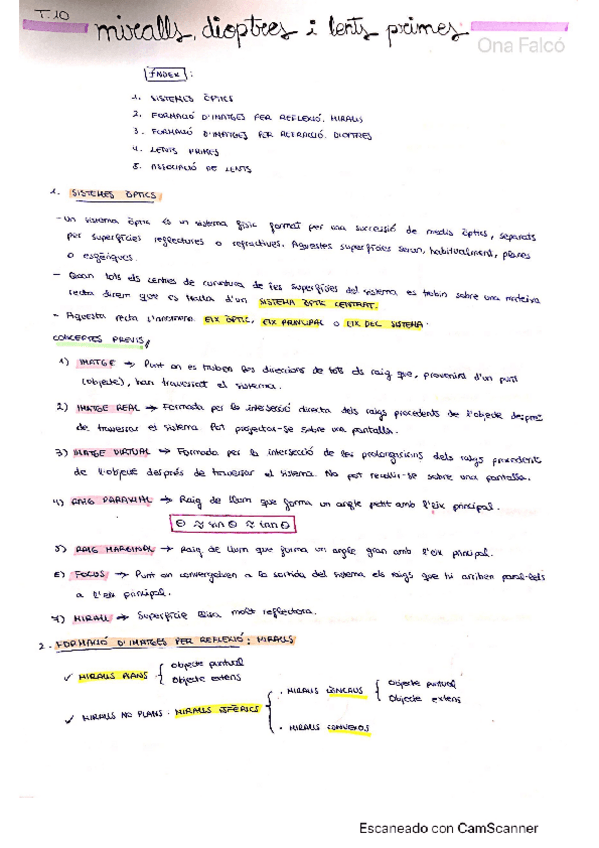 T.10
miralls, dioptres i lents primes.
Ona Falcó
ÍNDEX:
1. SISTEMES ÒPTICS
2. FORMACIÓ D'IMATGES PER REFLEXIÓ. MIRALLS
3. FORMACIÓ D'IMATGES PER REFRACCIÓ. DIOPTRES
4. LENTS PRIMES
5. ASSOCIACIÓ DE LENTS
1. SISTEMES ÒPTICS
- Un sistema òptic és un sistema físic format per una successió de medis òptics, separats
per superfícies reflectores o refractives. Aquestes superfícies seran, habitualment, planes
o esfèriques.
- Quan tots els centres de curvatura de les superfícies del sistema es trobin sobre una mateixa
recta direm que es tracta d'un SISTEMA ÒPTIC CENTRAT.
- Aquesta recta l'anomenem EIX ÒPTIC, EIX PRINCIPAL O EIX DEL SISTEMA.
CONCEPTES PREVIS
1) IMATGE → Punt on es troben les direccions de tots els raig que, provenint d'un punt
(objecte), han travessat el sistema.
2) IMATGE REAL → Formada per la intersecció directa dels raigs procedents de l'objecte després
de travessar el sistema. Pot projectar-se sobre una pantalla.
3) IMATGE VIRTUAL → Formada per la intersecció de les prolongacions dels raigs procedents
de l'objecte després de travessar el sistema. No pot recollir-se sobre una pantalla.
4) RAIG PARAXIAL → Raig de llum que forma un angle petit amb l'eix principal.
Θ ≈ sin Θ ≈ tan Θ
5) RAIG MARGINAL → Raig de llum que forma un angle gran amb l'eix principal.
6) FOCUS → Punt on convergeixen a la sortida del sistema els raigs que hi arriben paral·lels
a l'eix principal.
7) MIRALL → Superfície llisa molt reflectora.
2. FORMACIÓ D'IMATGES PER REFLEXIÓ: MIRALLS
✓ MIRALLS PLANS { Objecte puntual
Objecte extens
✓ MIRALLS NO PLANS. MIRALLS ESFÈRICS { · MIRALLS CÒNCAUS { Objecte puntual
Objecte extens
· MIRALLS CONVEXOS
Escaneado con CamScanner